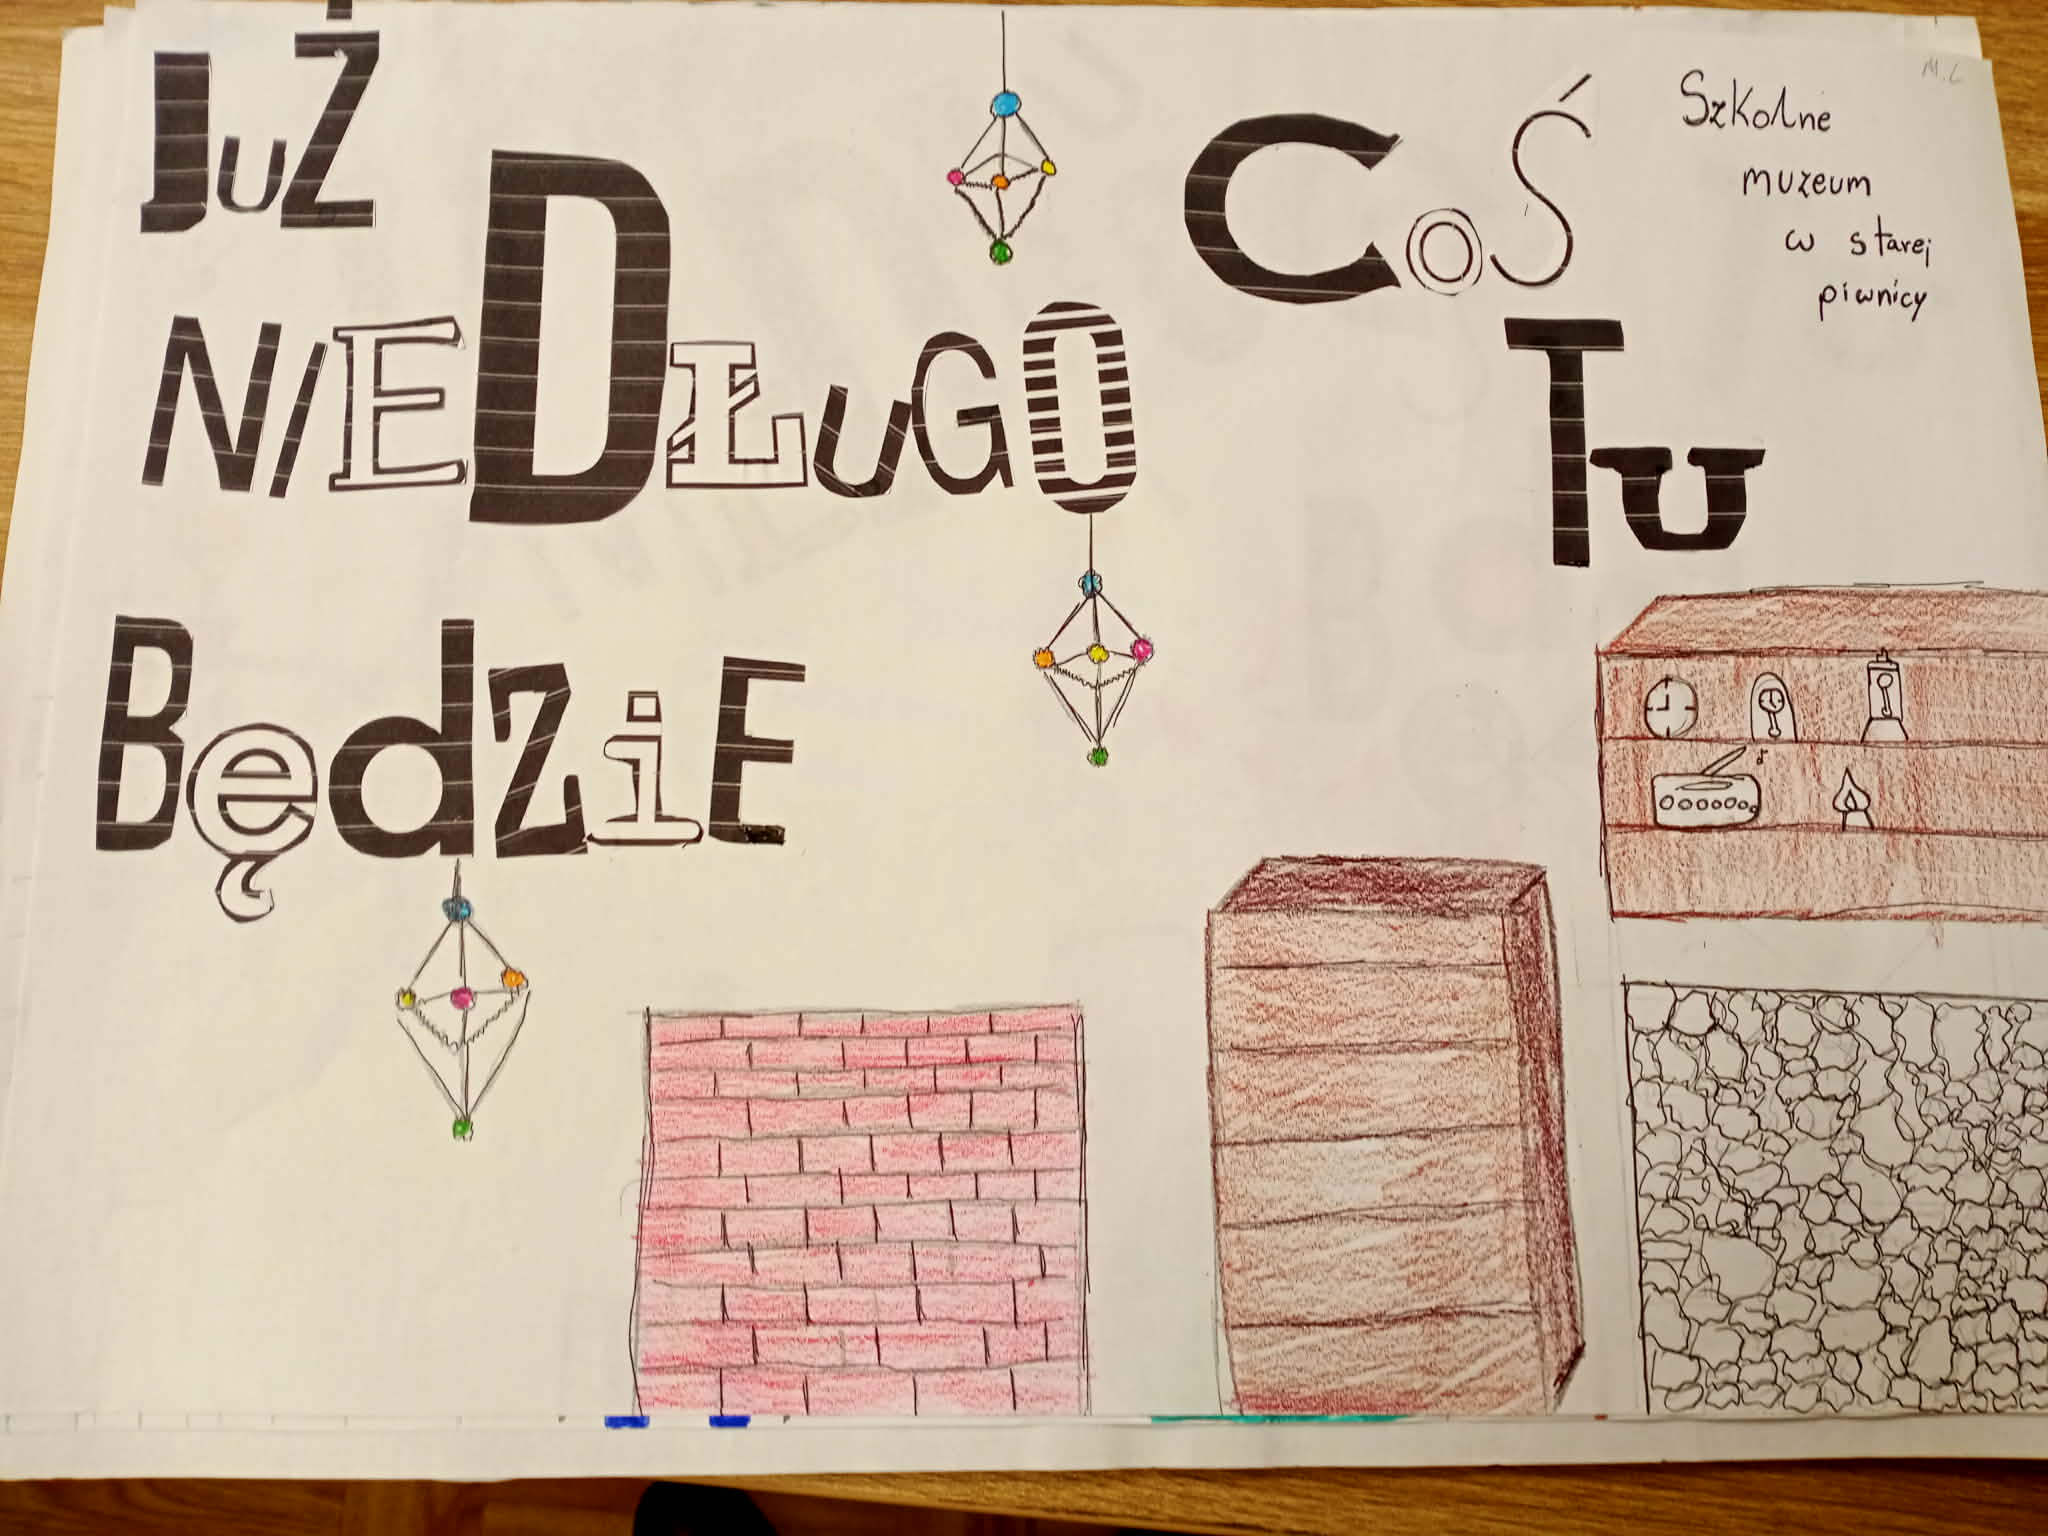 JuŻ
NIEDŁuGO
BędZiE
CoŚ
Tu
Szkolne
muzeum
w starej
piwnicy
M.L